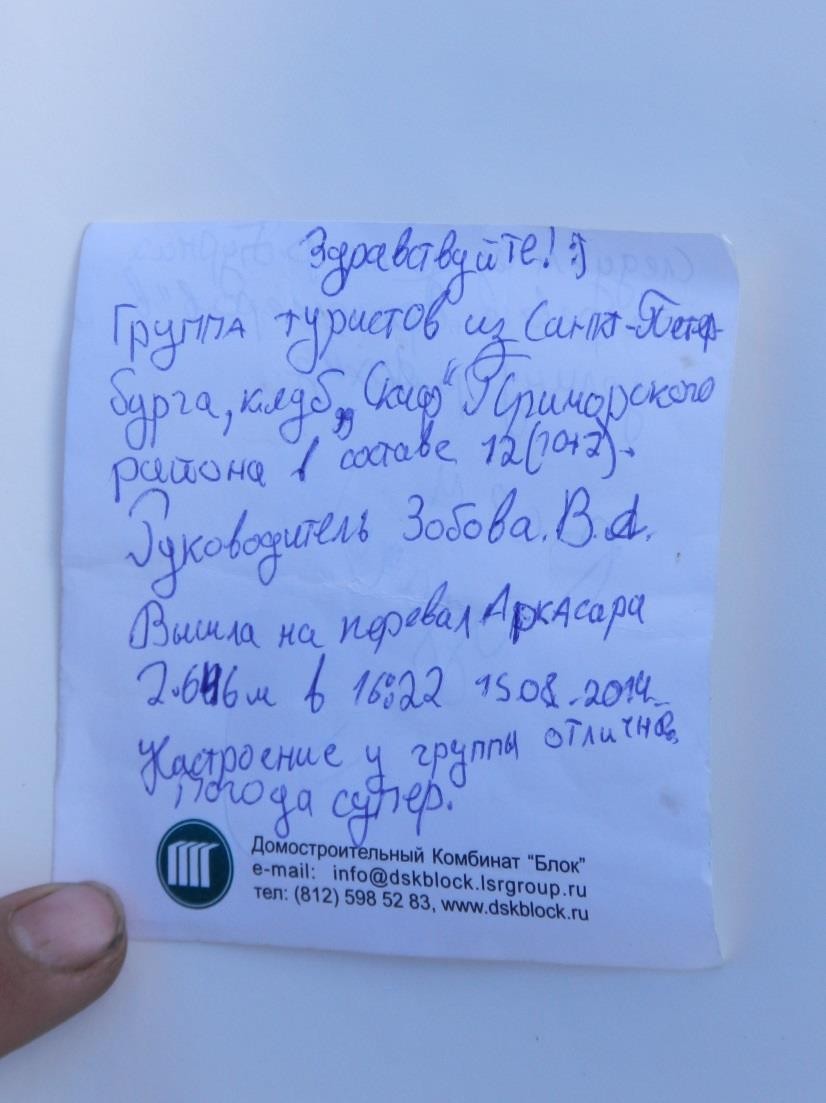 Здравствуйте! :)
Группа туристов из Санкт-Петер-
бурга, клуб „Скиф“ Приморского
района в составе 12(10+2).
Руководитель Зобова. В.А.
Вышла на перевал Аркасара
2.646м в 16:22 15.08.2014.
Настроение у группы отлично,
погода супер.
Домостроительный Комбинат "Блок"
e-mail: info@dskblock.lsrgroup.ru
тел: (812) 598 52 83, www.dskblock.ru